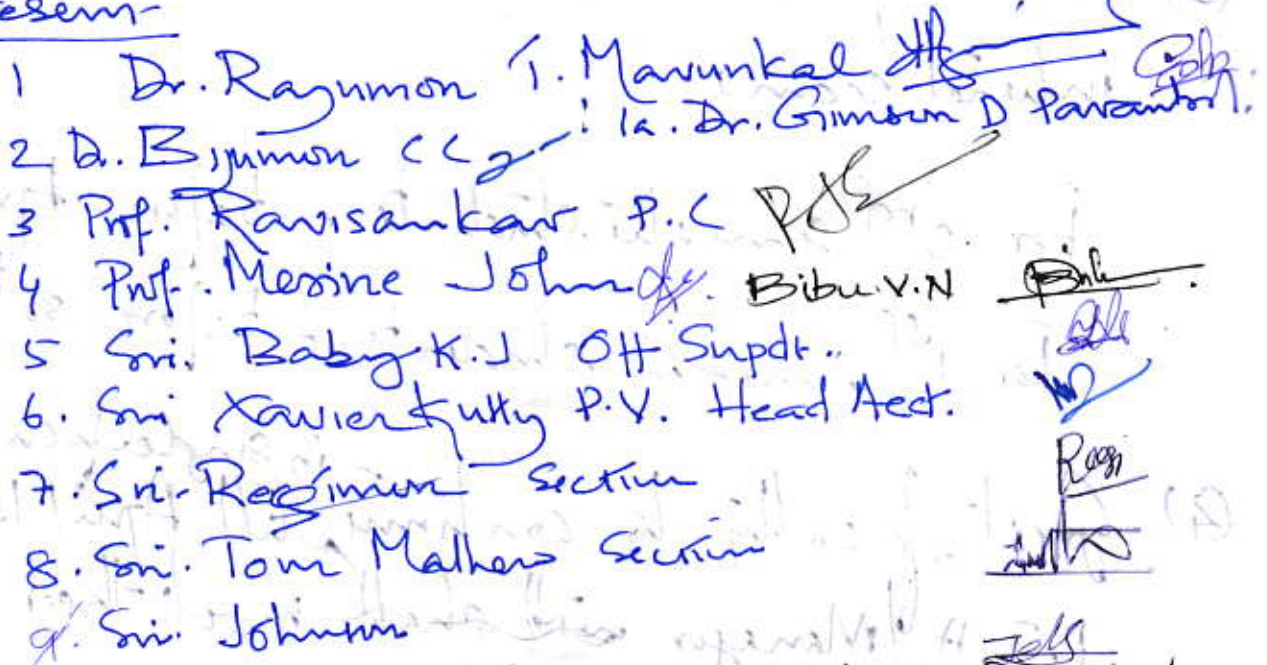 Present
1 Dr. Rajumon T. Mavunkal
1a. Dr. Gimson D Parambil.
2 D. Bijumon CC
3 Prof. Ravisankar P.C
4 Prof. Merine John Bibu.V.N
5 Sri. Baby K.J Off Supdt..
6. Sri Xavierkutty P.V. Head Acct.
7. Sri. Regimon Section
8. Sri. Tom Mathew Section
9. Sri. Johnson